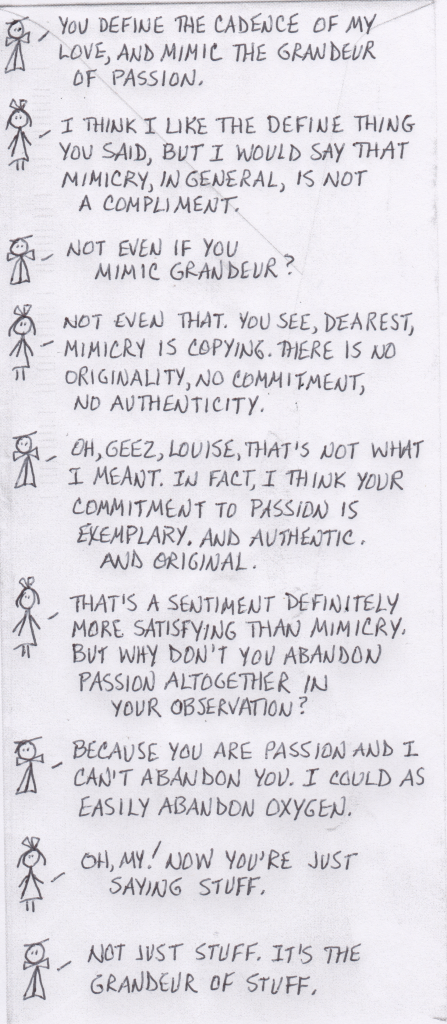 YOU DEFINE THE CADENCE OF MY
LOVE, AND MIMIC THE GRANDEUR
OF PASSION.
I THINK I LIKE THE DEFINE THING
YOU SAID, BUT I WOULD SAY THAT
MIMICRY, IN GENERAL, IS NOT
A COMPLIMENT.
NOT EVEN IF YOU
MIMIC GRANDEUR?
NOT EVEN THAT. YOU SEE, DEAREST,
MIMICRY IS COPYING. THERE IS NO
ORIGINALITY, NO COMMITMENT,
NO AUTHENTICITY.
OH, GEEZ, LOUISE, THAT'S NOT WHAT
I MEANT. IN FACT, I THINK YOUR
COMMITMENT TO PASSION IS
EXEMPLARY. AND AUTHENTIC.
AND ORIGINAL.
THAT'S A SENTIMENT DEFINITELY
MORE SATISFYING THAN MIMICRY.
BUT WHY DON'T YOU ABANDON
PASSION ALTOGETHER IN
YOUR OBSERVATION?
BECAUSE YOU ARE PASSION AND I
CAN'T ABANDON YOU. I COULD AS
EASILY ABANDON OXYGEN.
OH, MY! NOW YOU'RE JUST
SAYING STUFF.
NOT JUST STUFF. IT'S THE
GRANDEUR OF STUFF.